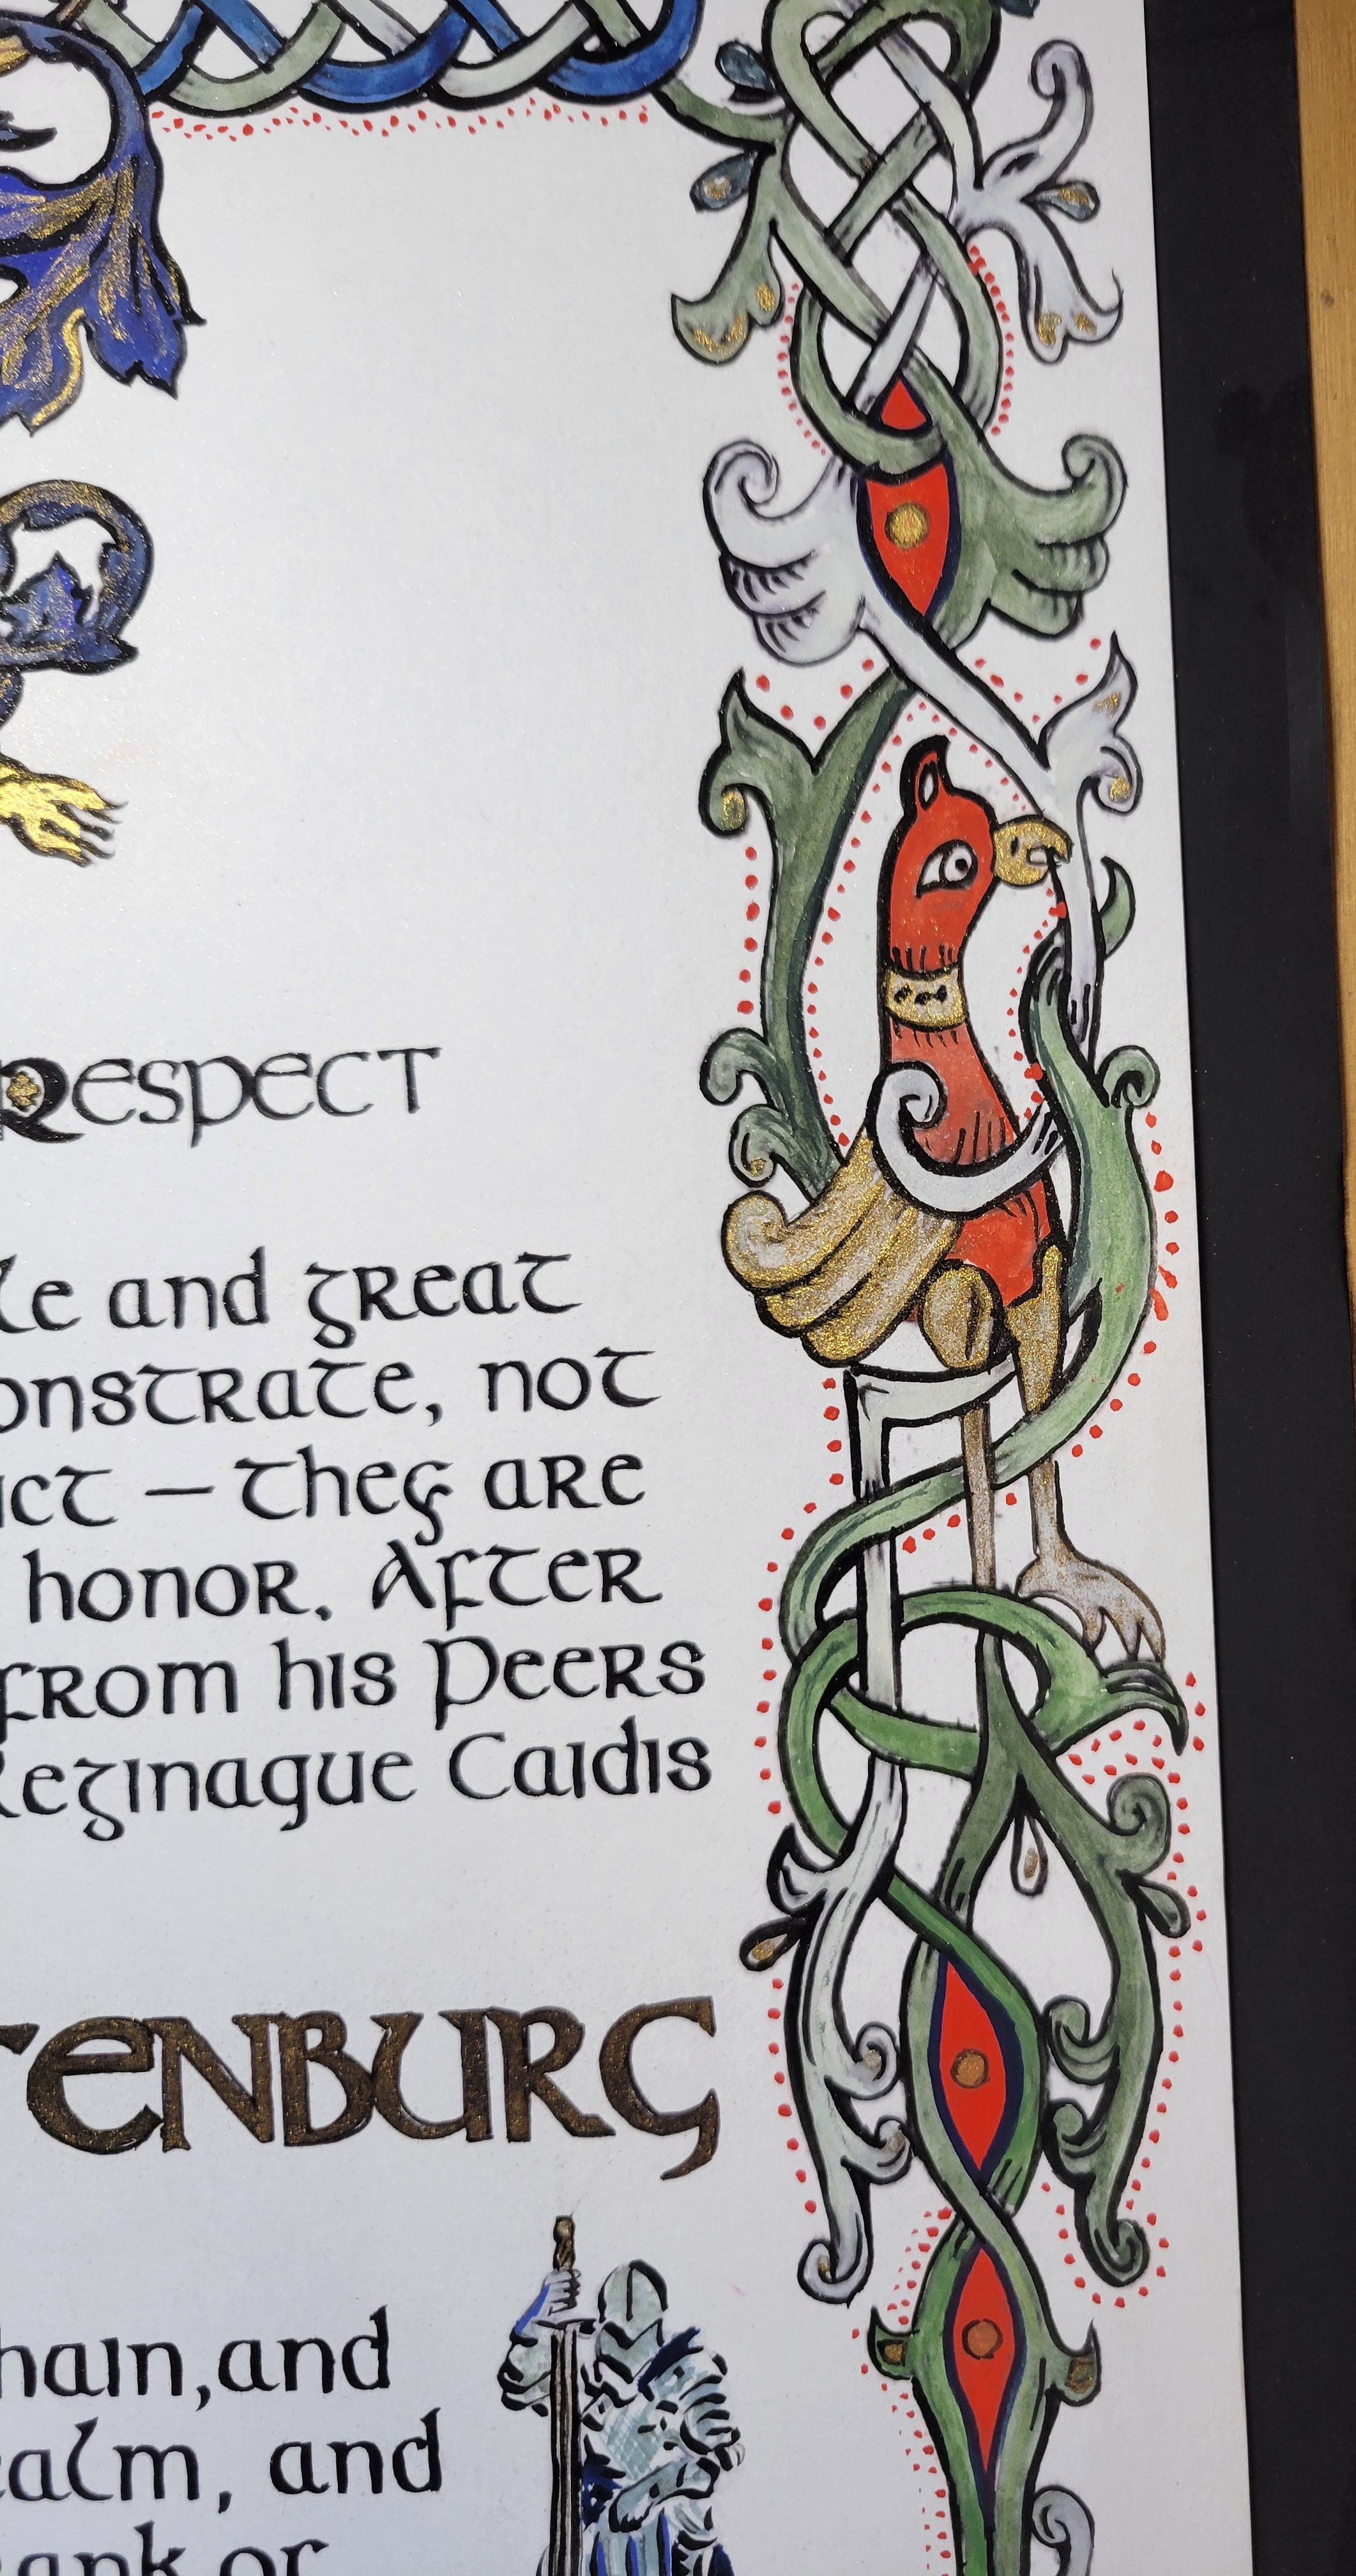 Respect
and great
onstrate, not
ct – they are
honor. After
from his Peers
Reginaque Caidis
TENBURG
hain, and
ealm, and
ank or